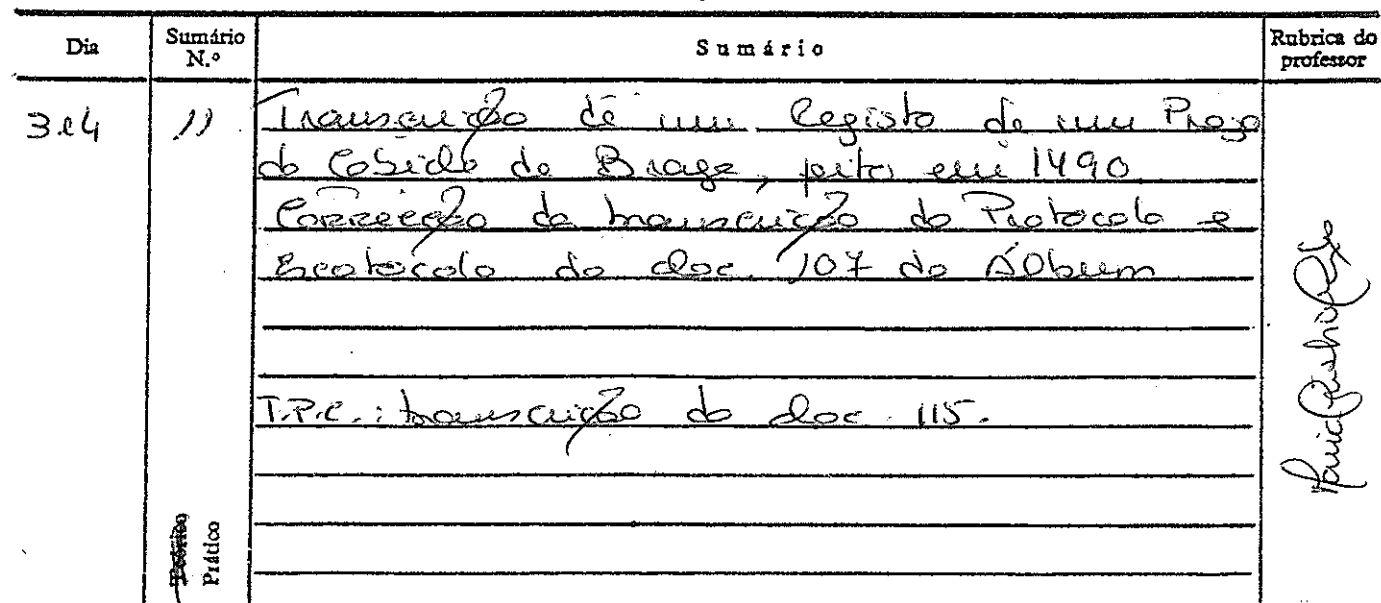 Dia
Sumário N.º
Sumário
Rubrica do professor
3 e 4
11
Transcrição de um Registo de um Prazo
do Cabido de Braga, feito em 1490.
Correcção da transcrição do Protocolo e
Escatocolo do doc. 107 do Álbum
T.P.C.: transcrição do doc. 115.
Teórico
Prático